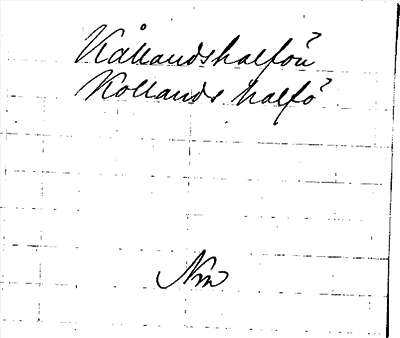 Kållandshalfön
Kollands halfö
Nm